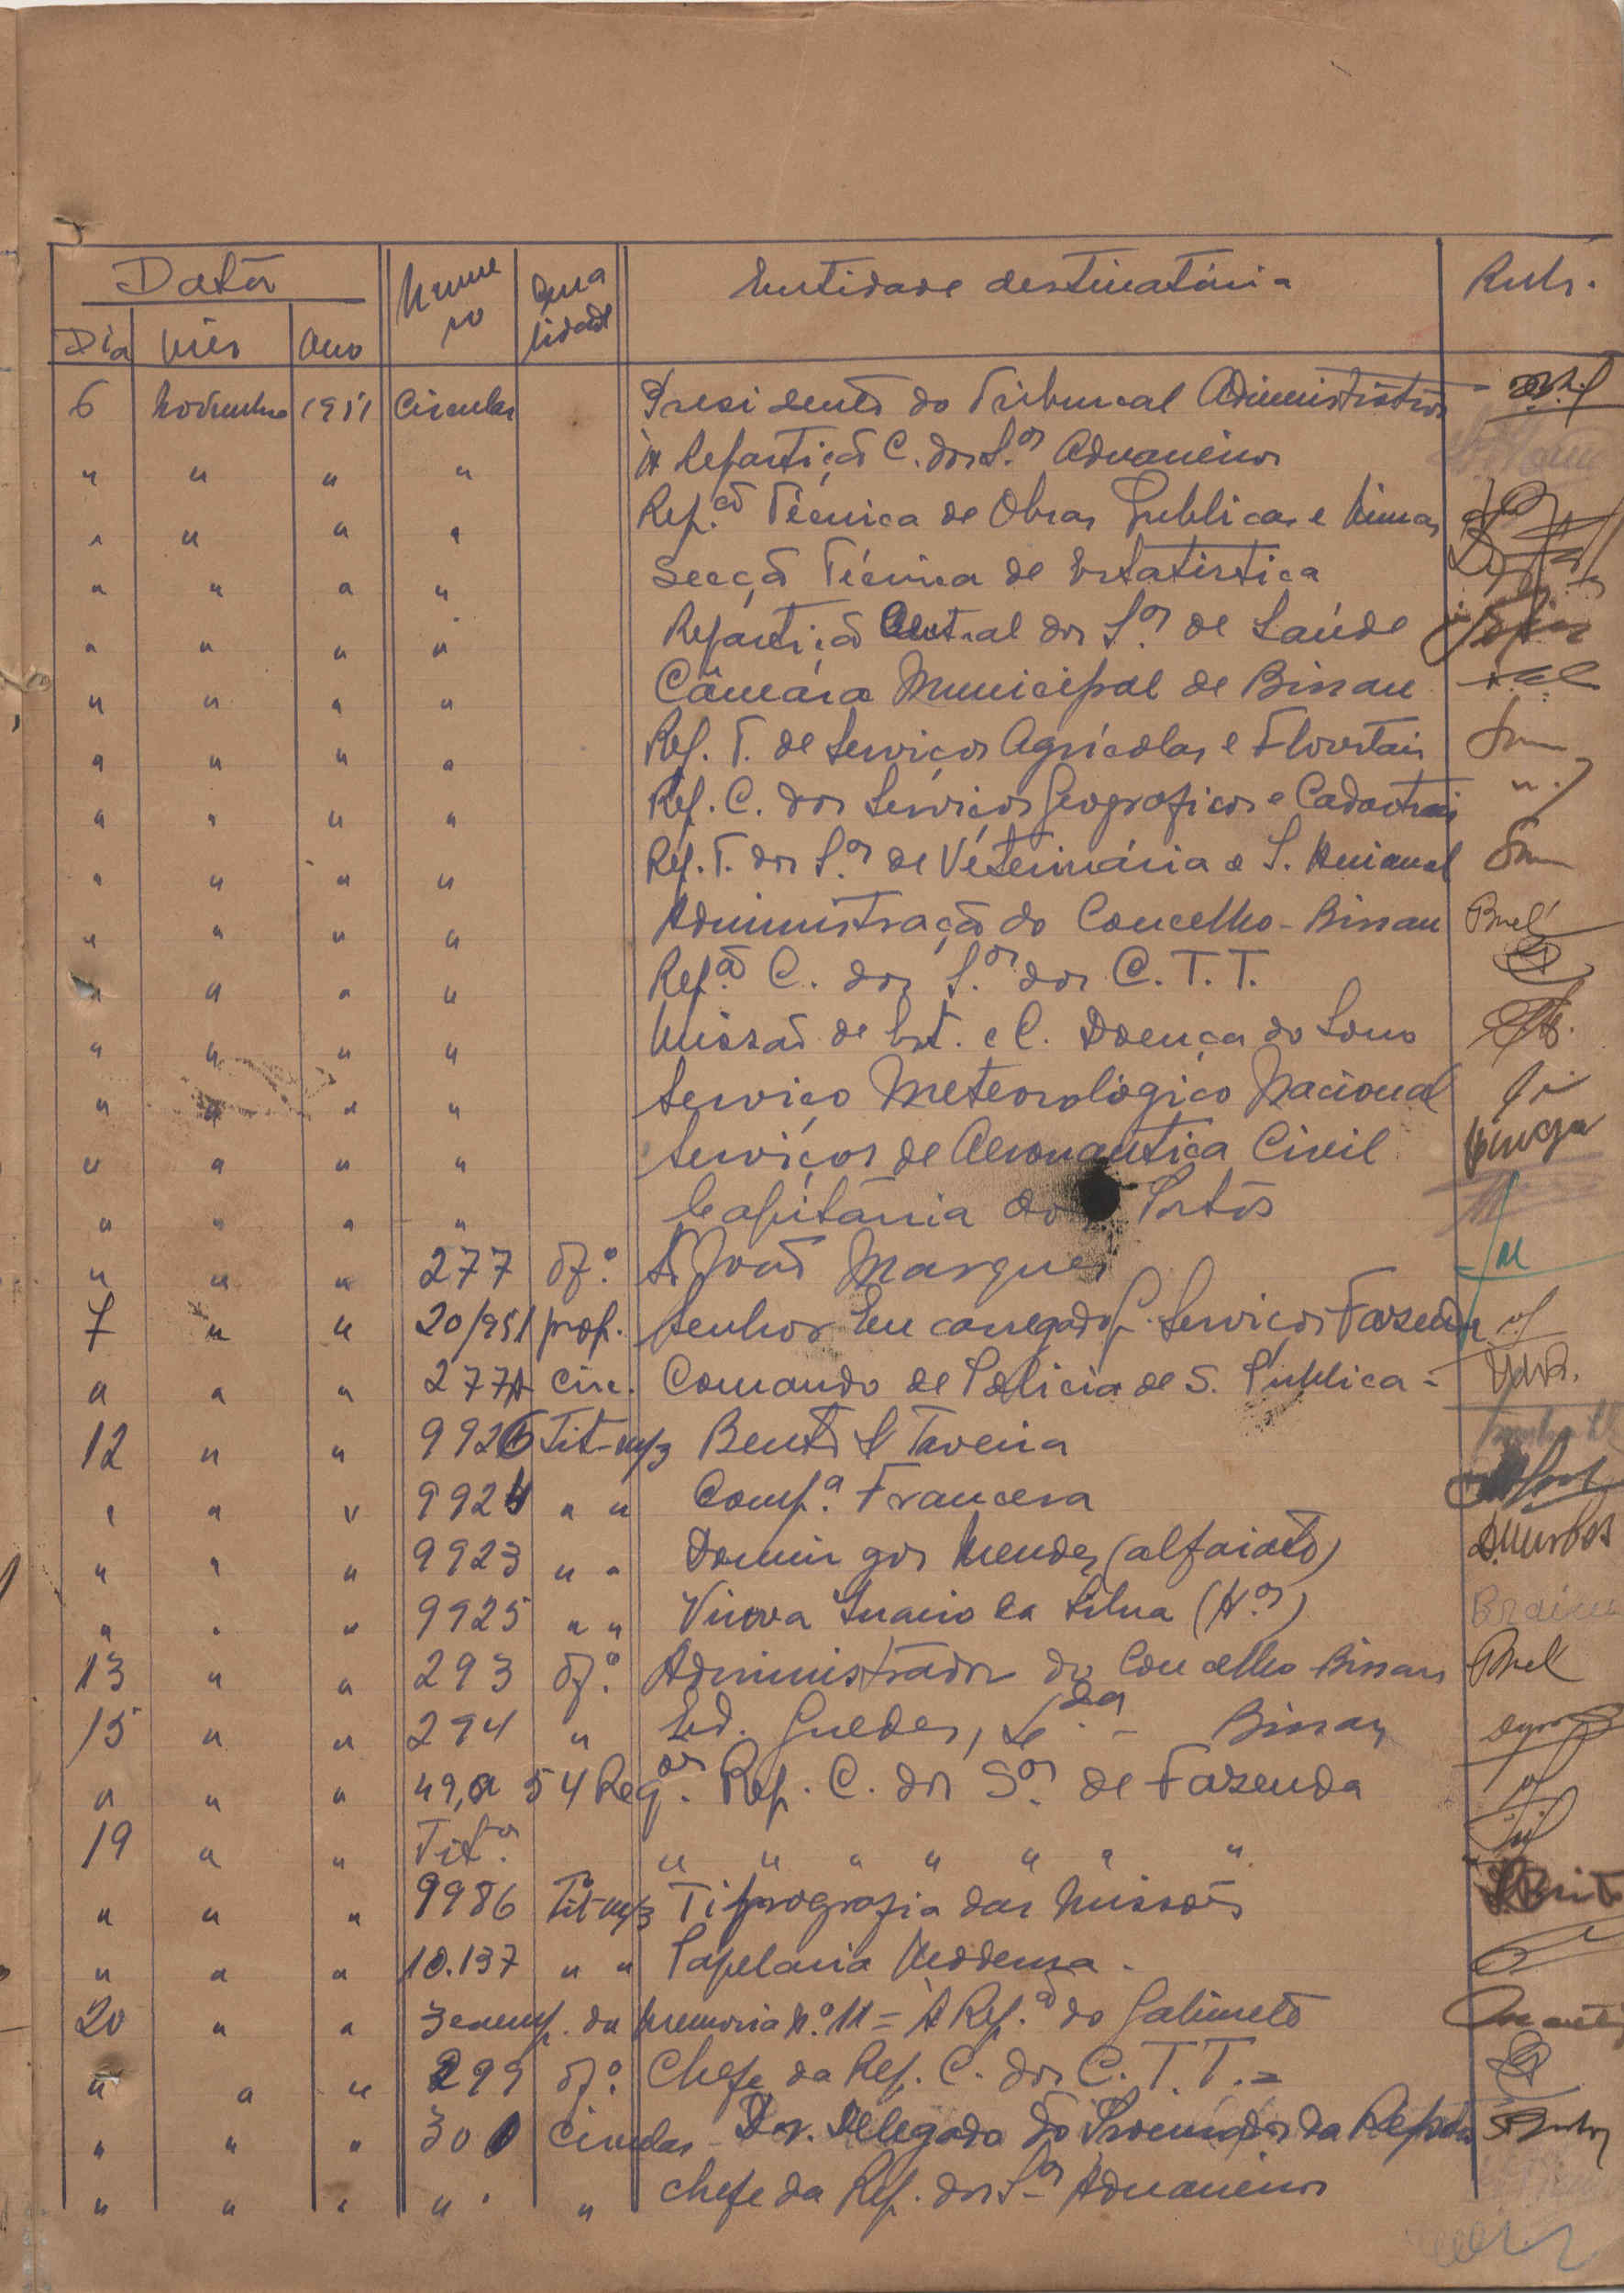 Data Numero Qualidade Entidade destinatária Rubr.
Dia Mês Ano
6 Novembro 1951 Circular Presidente do Tribunal Administrativo
" " " " À Repartição C. dos S.os Aduaneiros
" " " " Rep.ão Técnica de Obras Publicas e Minas
" " " " Secção Técnica de Estatistica
" " " " Repartição Central dos S.os de Saúde
" " " " Câmara Municipal de Bissau
" " " " Rep. T. de Serviços Agrícolas e Florestais
" " " " Rep. C. dos Serviços Geograficos e Cadastrais
" " " " Rep. T. dos S.os de Veterinária e I. Animal
" " " " Administração do Concelho - Bissau
" " " " Rep.ão C. dos S.os dos C.T.T.
" " " " Missão de Est. e C. Doença do Sono
" " " " Serviço Meteorológico Nacional
" " " " Serviços de Aeronautica Civil
" " " " Capitania dos Portos
" " " 277 of.º A João Marques
7 " " 20/951 prop. Senhor Encarregado S. Serviços Fazenda
" " " 277A Circ. Comando de Policia de S. Publica =
12 " " 9926 Tit-m/3 Bento S Taveira
" " " 9924 " " Comp.ª Francesa
" " " 9923 " " Domingos Mendes (alfaiate)
" " " 9925 " " Viuva Inacio da Silva (H.os)
13 " " 293 of.º Administrador do Concelho Bissau
15 " " 294 " Ed. Guedes, L.da - Bissau
" " " 49, a 54 Req.os Rep. C. dos S.os de Fazenda
19 " " Tit.os " " " " " " "
" " " 9986 Tit-m/3 Tipografia das Missões
" " " 10.137 " " Papelaria Moderna.
20 " " 3 exemp. da Memoria N.º 11 = À Rep.ão do Gabinete
" " " 299 of.º Chefe da Rep. C. dos C.T.T. =
" " " 300 Circular - Dr. Delegado do Procurador da Republica
" " " " " Chefe da Rep. dos S.os Aduaneiros